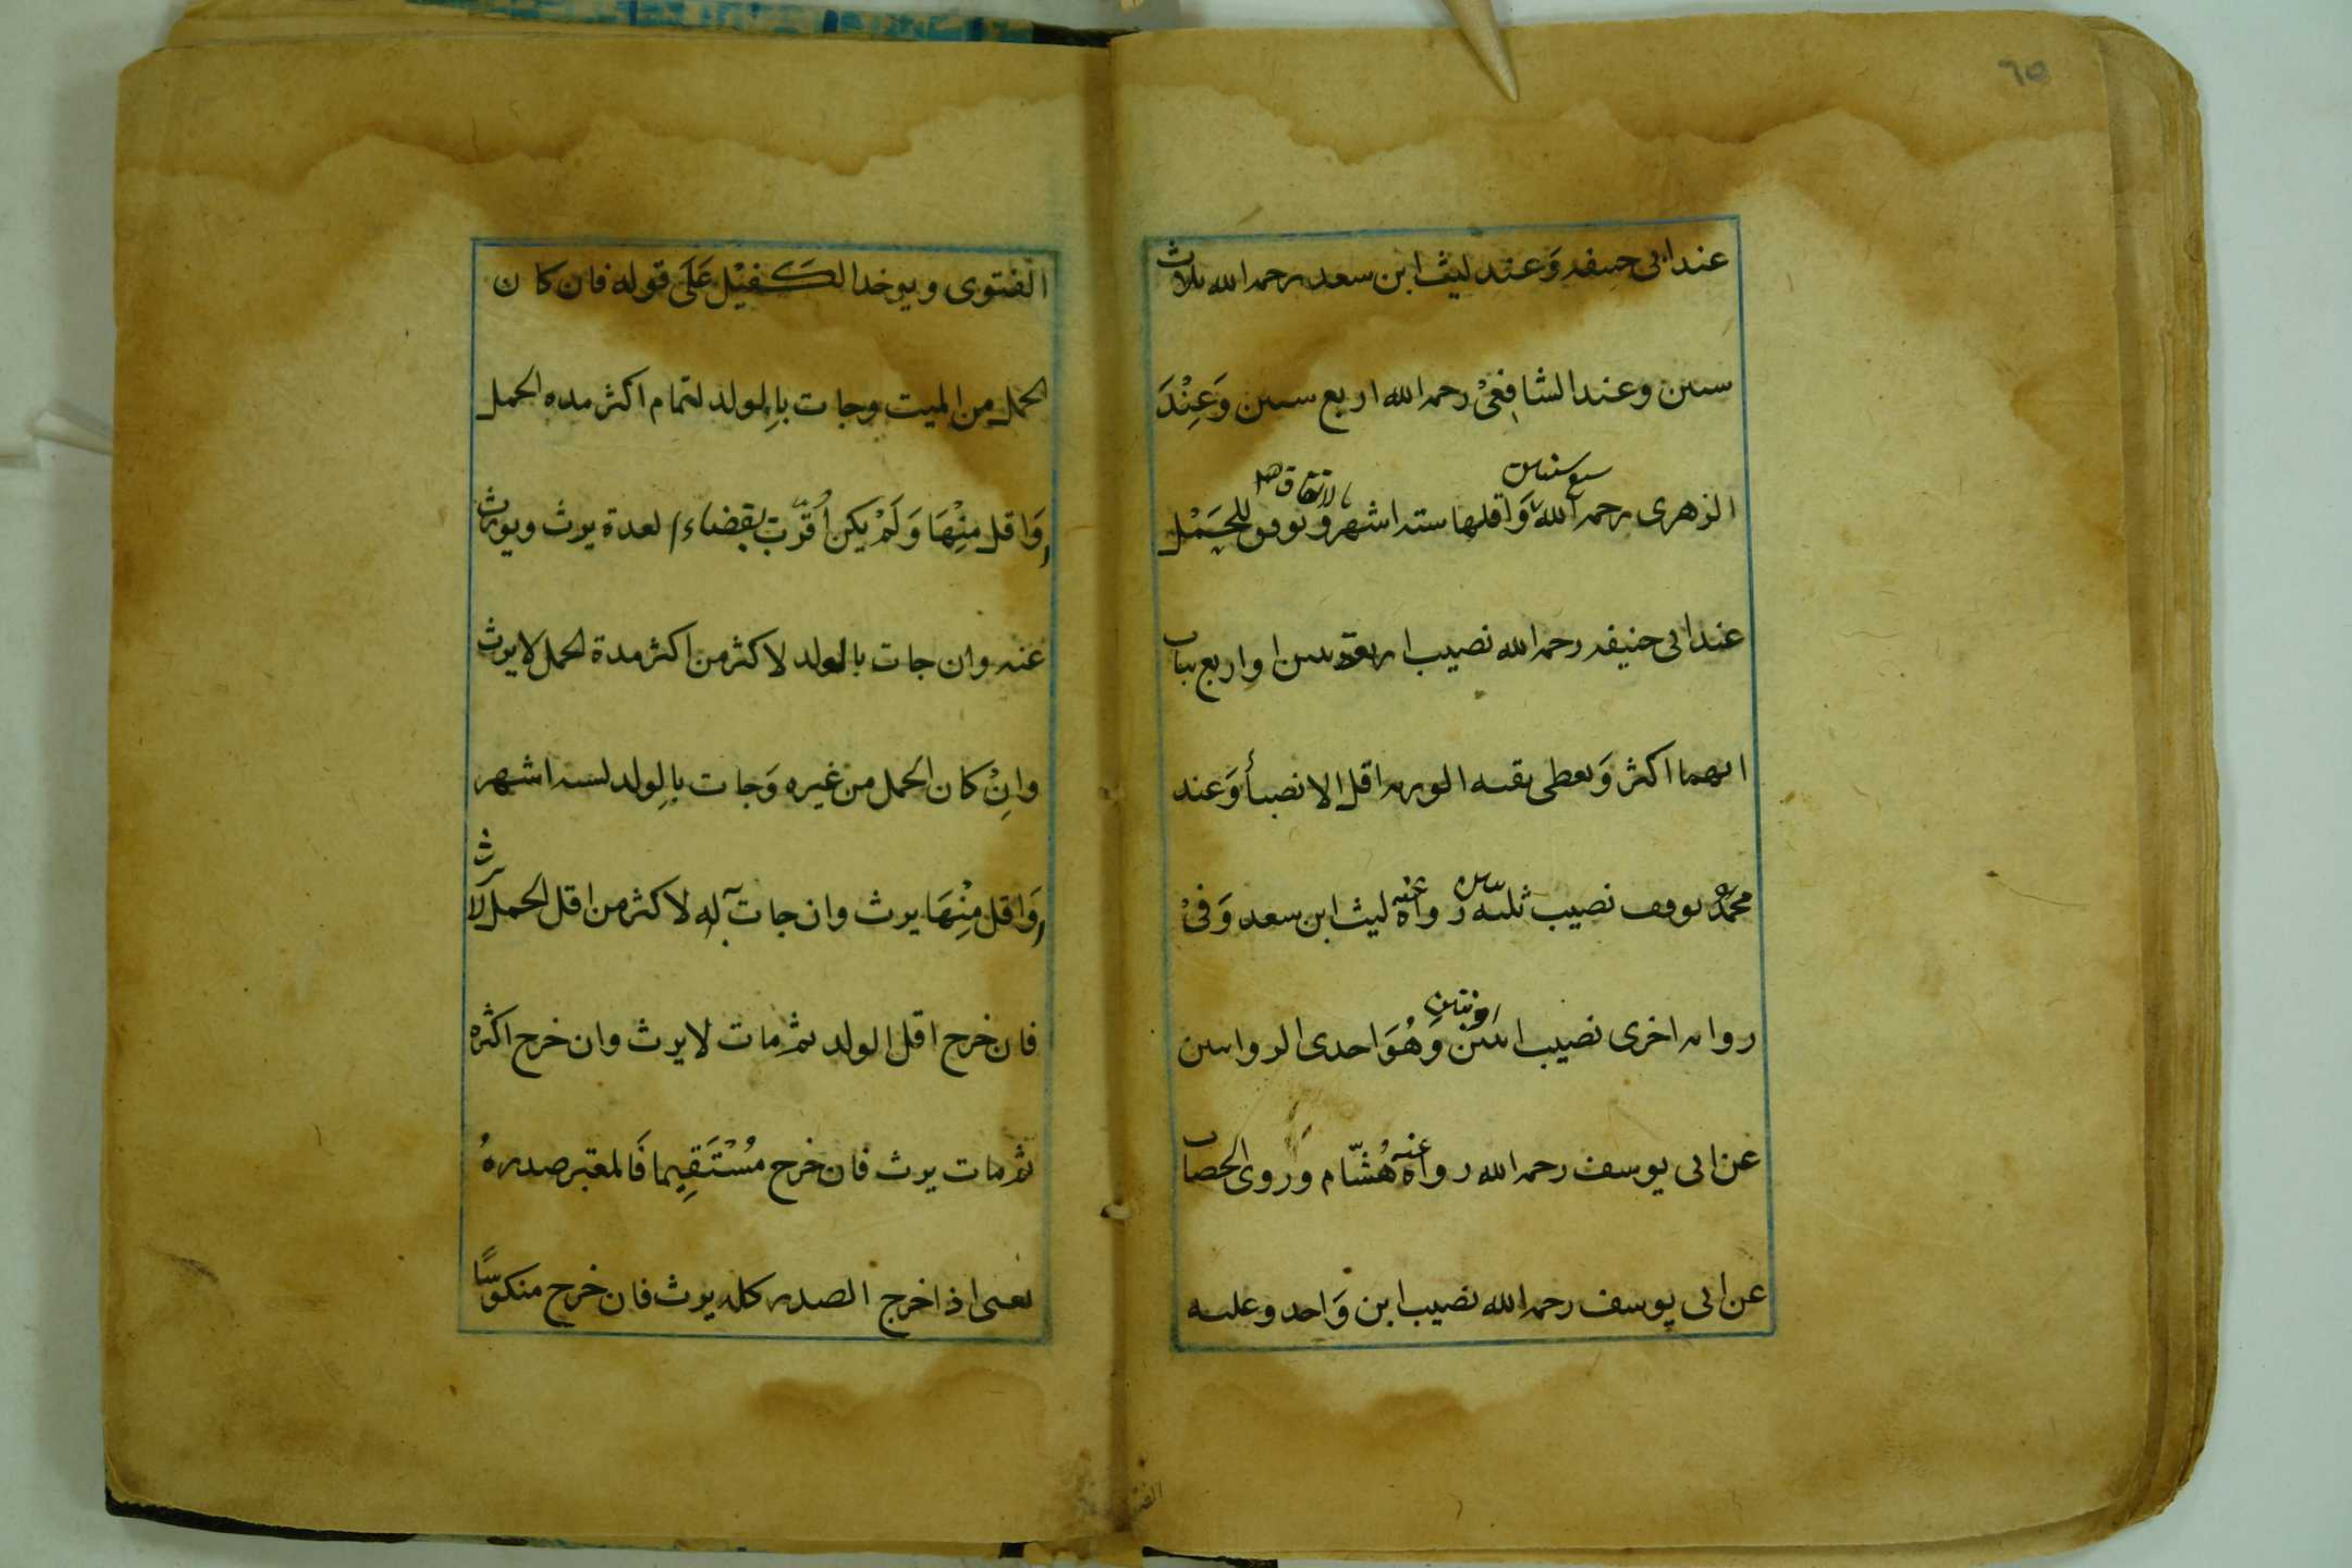 ٦٥
عند ابى حنيفه وَعند ليث ابن سعد رحمه الله ثلاث
سنين وعند الشافِعىْ رحمه الله اربع سنين وَعِنْدَ
سبع سنين
بالاتفاق هم
الزهرى رحمه الله وَاقلها سته اشهر وَيوقف للحَمْل
عند ابى حنيفه رحمه الله نصيب اربعة بنين او اربع بنات
ايهما اكثر وَيعطى بقيه الورثه اقل الانصبأ وَعند
محمّد يوقف نصيب ثلثه بنين رواه عنه ليث ابن سعد وَفىْ
روايه اخرى نصيب ابنين وَهُوَ احدى الروايتين
او بنتين
عن ابى يوسف رحمه الله رواه عنه هُشّام وَروى الخصاف
عن ابى يوسف رحمه الله نصيب ابن وَاحد وعليه
الفتوى
الفتوى ويوخد الكَفيْل عَلَى قوله فان كان
الحمل من الميت وجات باِلولد لتمام اكثر مده الحمل
اوَاقل منِْهَا وَلَمْ يكن اُقرّت بقضاء العدة يرث ويورث
عنه وان جات بالولد لاكثر من اكثر مدة الحمل لا يرث
وانِْ كان الحمل من غيره وَجات باِلولد لسته اشهر
اوَاقل مِنْهَا يرث وان جات به لاكثر من اقل الحمل لَا يرث
فان خرج اقل الولد ثم مات لا يرث وان خرج اكثره
ثم مات يرث فان خرج مُسْتَقِيما فَالمعتبر صدرهُ
يعنى اذا خرج الصدر كله يرث فان خرج منكوسًا